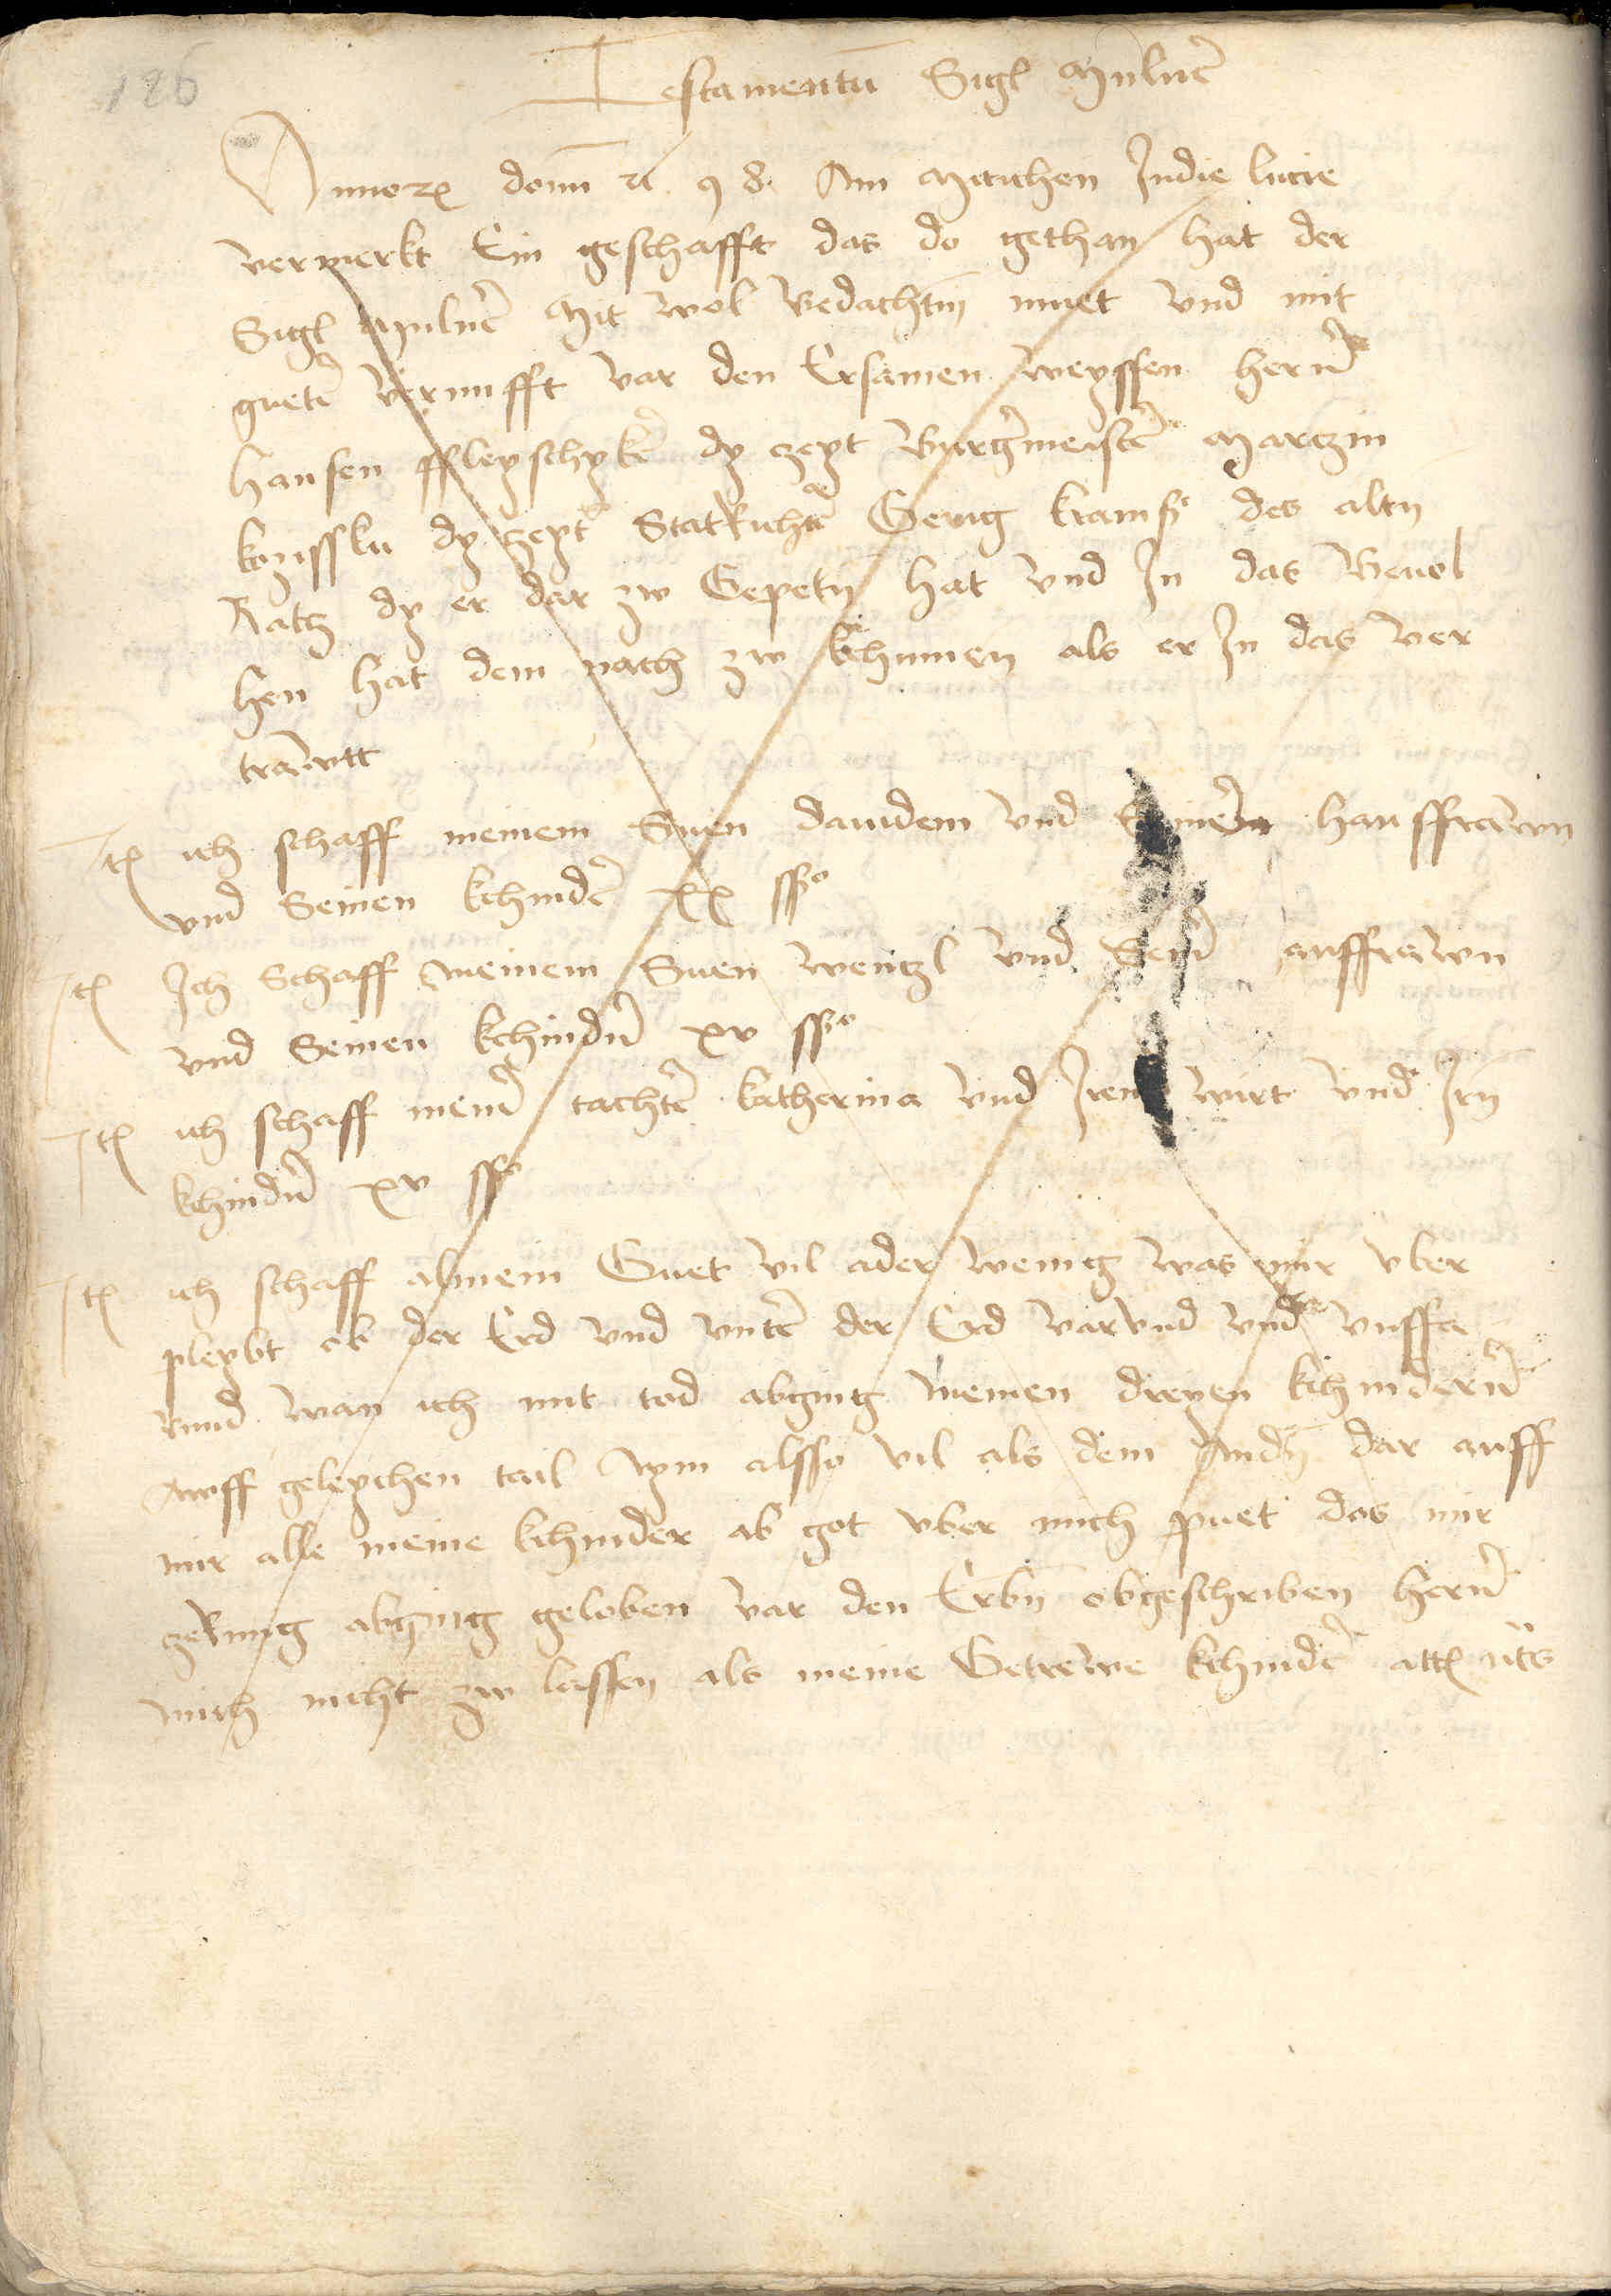 126
Testamentu Sigl Mulner
Annorum domi 98. Am Mitichen Indie lucie
vermerkt Ein geschafft das do gethan hat der
Sigl Mulner Mit wol Bedachtm muet Vnd mit
gueter Vernufft Var den Ersamen weyssen hern
hansen ffleyschyker dy czeyt Burgermeister Marczin
dy czeyt Statrichter Gerug des altn
Ratz dy er dar zw Gepetn hat Vnd In das Beuol
hen hat dem nach zw kchumen als er In das Ver
trawtt
Itm ich schaff meinem Suen dauidem Vnd Seiner hausffrawn
vnd Seinen kchinder xx sso
Itm Ich Schaff meinem Suen wentzl Vnd Seinr ausffrawn
vnd Seinen kchindn xv sso
Itm ich schaff meiner tachter katherina Vnd Irem wirt Vnd Irn
kchindn xv sso
Itm ich schaff almein Guet Vil ader wenig was mir Vber
pleybt ob der Erd Vnd Vnter der Erd VarVnd Vnd Vnffer
Vund wan ich mit tod abging meinen dreyen kchindern
Awff geleychen tail Aym alsso Vil als dem Andn dar auff
mir alle meine kchinder ab got Vber mich puet das mir
zerung abging geloben Var den Erbn obgeschriben hern
mich nicht zw lassen als meine Getrewe kchinder